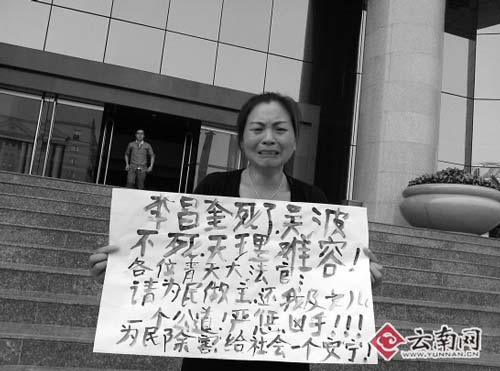 李昌奎死了,吴波
不死,天理难容!
各位青天大法官:
请为民做主.还我及女儿
一个公道!严惩凶手!!!
为民除害!给社会一个安宁!
云南网
WWW.YUNNAN.CN